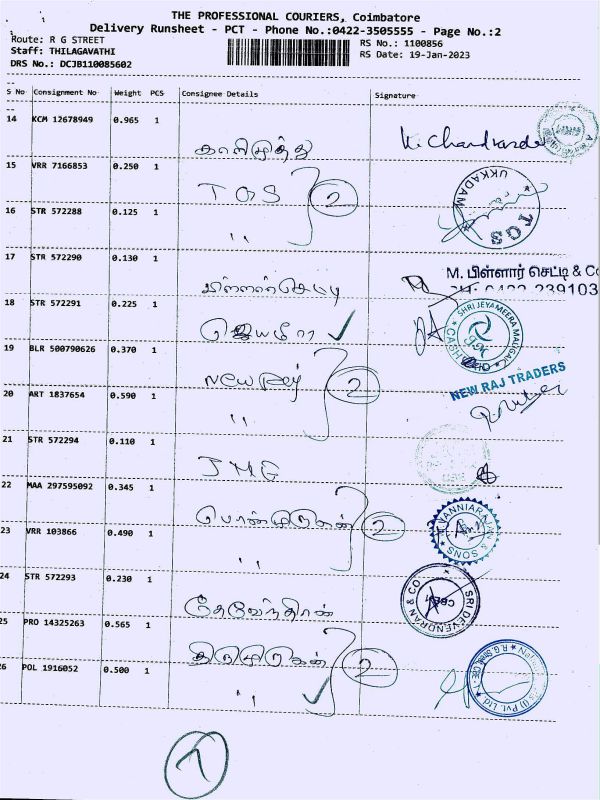 THE PROFESSIONAL COURIERS, Coimbatore
Delivery Runsheet - PCT - Phone No.:0422-3505555 - Page No.:2
Route: R G STREET
RS No.: 1100856
Staff: THILAGAVATHI
RS Date: 19-Jan-2023
DRS No.: DCJB110085602
S No Consignment No Weight PCS Consignee Details Signature
14 KCM 12678949 0.965 1
காளிமுத்து K. Chandrasde
15 VRR 7166853 0.250 1
TGS 2 UKKADAM TGS
16 STR 572288 0.125 1
"
17 STR 572290 0.130 1
M. பிள்ளார் செட்டி & Co
18 STR 572291 0.225 1
ஜெயமீரா SHRI JEYAMEERA MALIGAI CASH
19 BLR 500790626 0.370 1
NEW RAJ TRADERS
20 ART 1837654 0.590 1
"
21 STR 572294 0.110 1
JMG
22 MAA 297595092 0.345 1
பொன்முருகன் 2 VANNIARAJAN & SONS
23 VRR 103866 0.490 1
"
24 STR 572293 0.230 1
தேவேந்திரன் SRI DEVENDRAN & CO CBE-1
25 PRO 14325263 0.565 1
திருமுருகன் 2 R.G. Street, CBE-1 (I) Pvt. Ltd.
26 POL 1916052 0.500 1
"
7